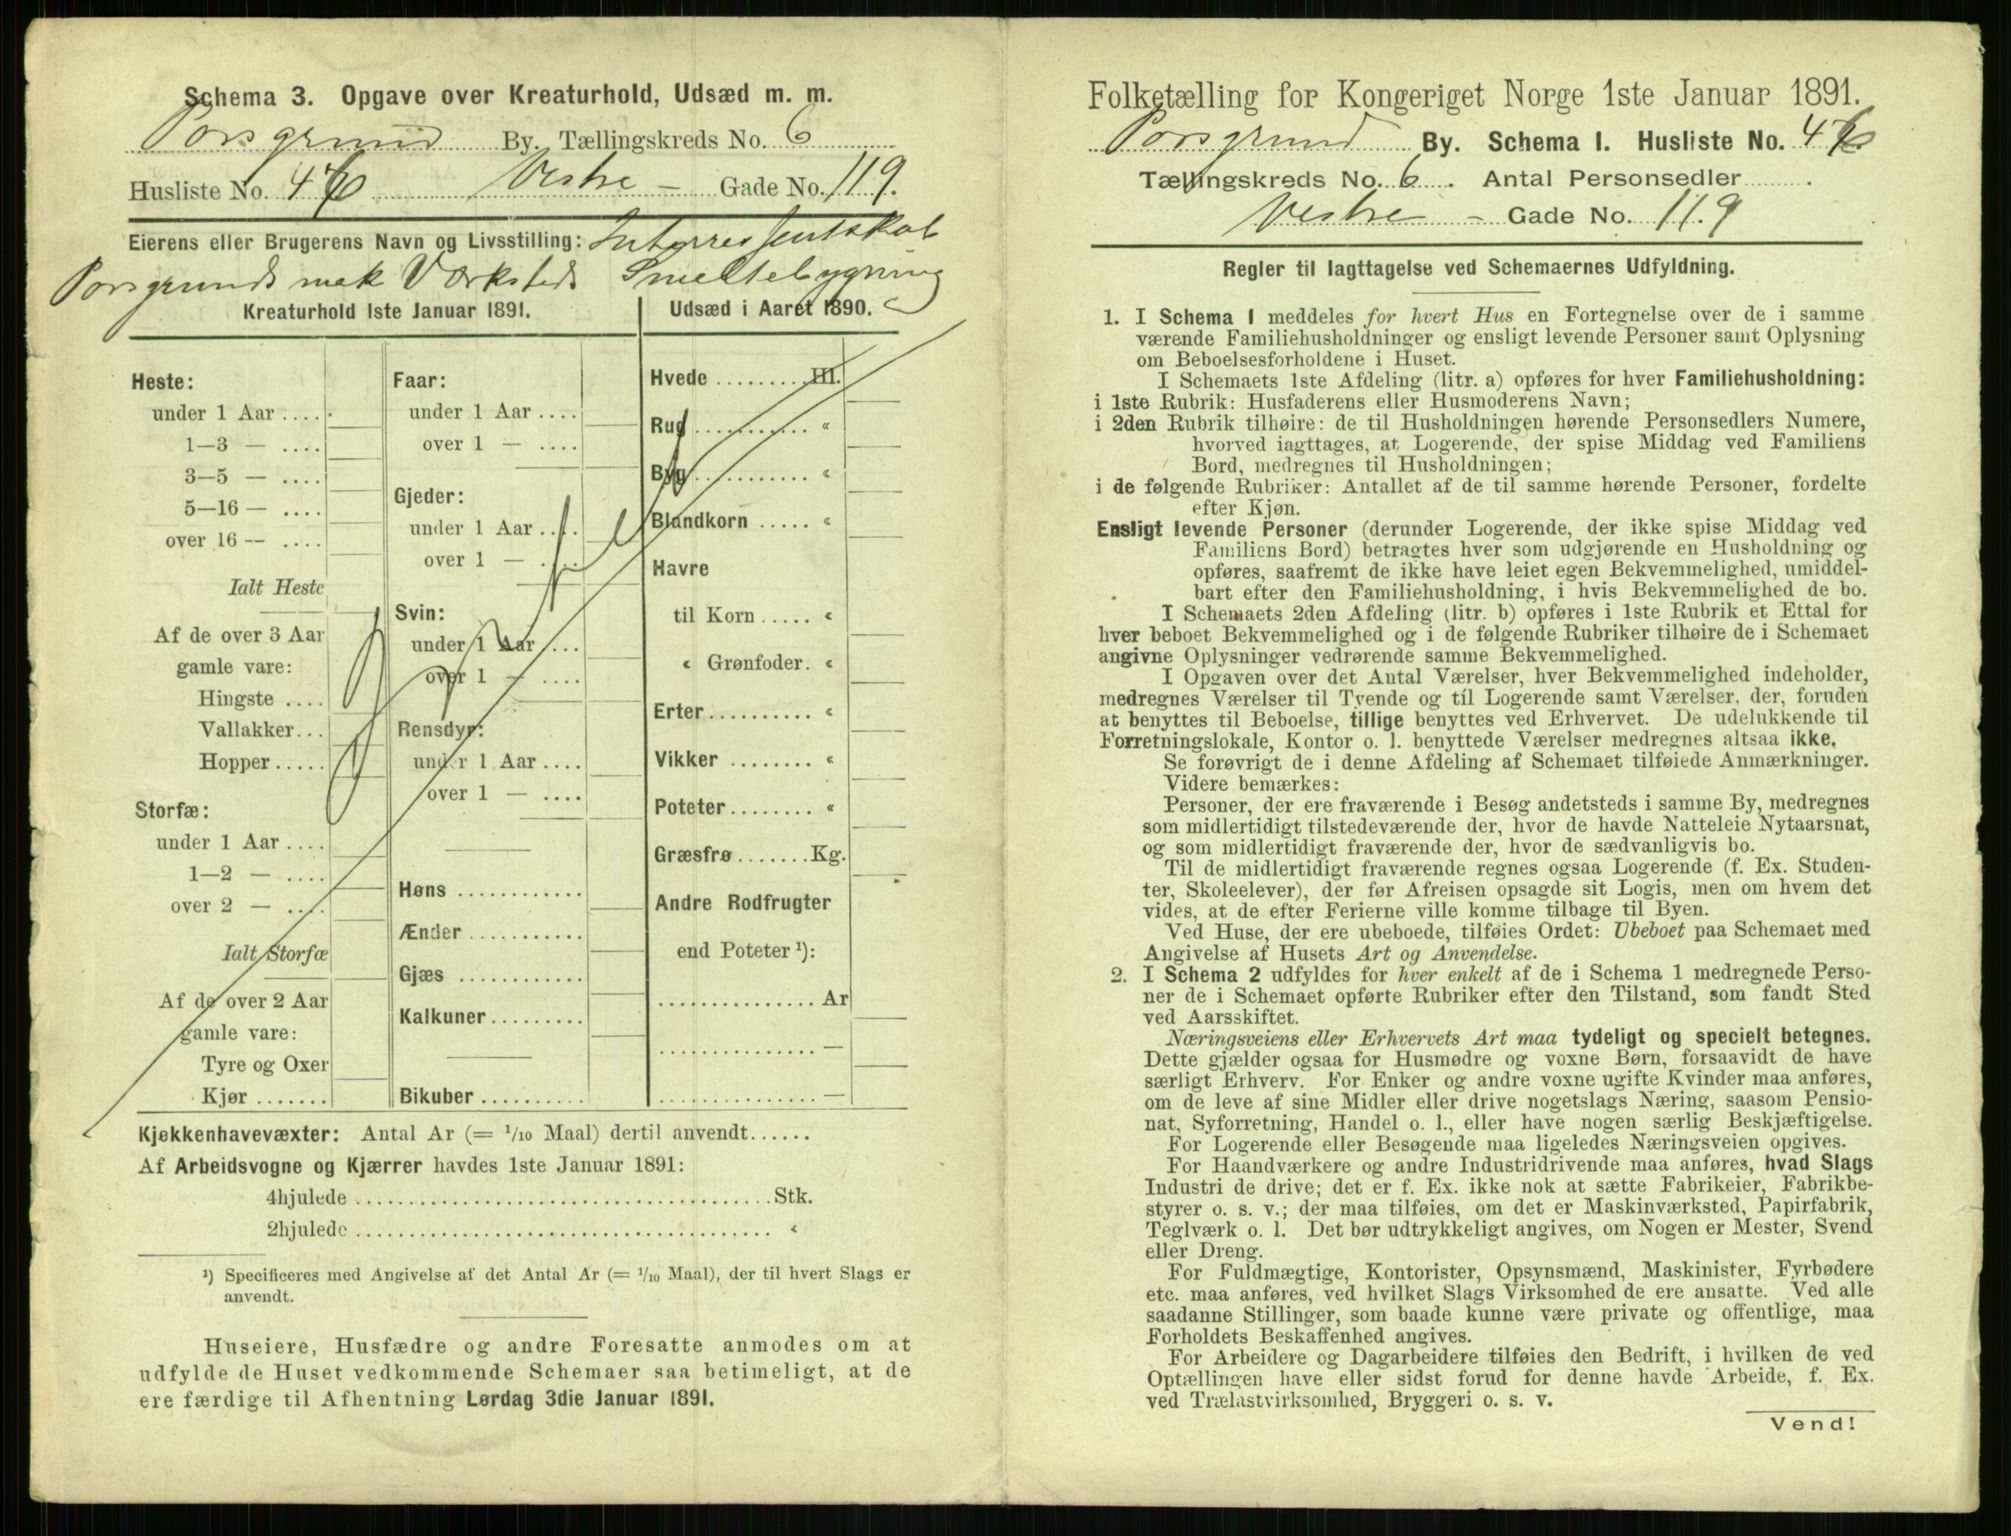 Schema 3. Opgave over Kreaturhold, Udsæd m. m.
Porsgrund By. Tællingskreds No. 6
Husliste No. 46 Vestre – Gade No. 119.
Eierens eller Brugerens Navn og Livsstilling: Interessentskab
Porsgrunds mek Værksteds Smeltebygning
Kreaturhold 1ste Januar 1891.
Heste:
under 1 Aar ....
1—3 — ....
3—5 — ....
5—16 — ....
over 16 — ....
Ialt Heste
Af de over 3 Aar
gamle vare:
Hingste ....
Vallakker...
Hopper.....
Storfæ:
under 1 Aar ....
1—2 — ....
over 2 — ....
Ialt Storfæ
Af de over 2 Aar
gamle vare:
Tyre og Oxer
Kjør .......
Faar:
under 1 Aar ....
over 1 — ....
Gjeder:
under 1 Aar ....
over 1 — ....
Svin:
under 1 Aar ....
over 1 — ....
Rensdyr:
under 1 Aar ....
over 1 — ....
Høns ...........
Ænder ...........
Gjæs ...........
Kalkuner.........
Bikuber ..........
Udsæd i Aaret 1890.
Hvede .........Hl.
Rug ........... «
Byg ........... «
Blandkorn ..... «
Havre
til Korn ..... «
« Grønfoder. «
Erter.......... «
Vikker ........ «
Poteter........ «
Græsfrø.......Kg.
Andre Rodfrugter
end Poteter ¹):
............... Ar
............... —
............... —
Kjøkkenhavevæxter: Antal Ar (= 1/10 Maal) dertil anvendt......
Af Arbeidsvogne og Kjærrer havdes 1ste Januar 1891:
4hjulede ........................................Stk.
2hjulede ........................................ «
¹) Specificeres med Angivelse af det Antal Ar (= 1/10 Maal), der til hvert Slags er
anvendt.
Huseiere, Husfædre og andre Foresatte anmodes om at
udfylde de Huset vedkommende Schemaer saa betimeligt, at de
ere færdige til Afhentning Lørdag 3die Januar 1891.
Folketælling for Kongeriget Norge 1ste Januar 1891.
Porsgrund By. Schema I. Husliste No. 46
Tællingskreds No. 6. Antal Personsedler .......... .
Vestre – Gade No. 119
Regler til Iagttagelse ved Schemaernes Udfyldning.
1. I Schema I meddeles for hvert Hus en Fortegnelse over de i samme
værende Familiehusholdninger og ensligt levende Personer samt Oplysning
om Beboelsesforholdene i Huset.
I Schemaets 1ste Afdeling (litr. a) opføres for hver Familiehusholdning:
i 1ste Rubrik: Husfaderens eller Husmoderens Navn;
i 2den Rubrik tilhøire: de til Husholdningen hørende Personsedlers Numere,
hvorved iagttages, at Logerende, der spise Middag ved Familiens
Bord, medregnes til Husholdningen;
i de følgende Rubriker: Antallet af de til samme hørende Personer, fordelte
efter Kjøn.
Ensligt levende Personer (derunder Logerende, der ikke spise Middag ved
Familiens Bord) betragtes hver som udgjørende en Husholdning og
opføres, saafremt de ikke have leiet egen Bekvemmelighed, umiddel-
bart efter den Familiehusholdning, i hvis Bekvemmelighed de bo.
I Schemaets 2den Afdeling (litr. b) opføres i 1ste Rubrik et Ettal for
hver beboet Bekvemmelighed og i de følgende Rubriker tilhøire de i Schemaet
angivne Oplysninger vedrørende samme Bekvemmelighed.
I Opgaven over det Antal Værelser, hver Bekvemmelighed indeholder,
medregnes Værelser til Tyende og til Logerende samt Værelser, der, foruden
at benyttes til Beboelse, tillige benyttes ved Erhvervet. De udelukkende til
Forretningslokale, Kontor o. l. benyttede Værelser medregnes altsaa ikke.
Se forøvrigt de i denne Afdeling af Schemaet tilføiede Anmærkninger.
Videre bemærkes:
Personer, der ere fraværende i Besøg andetsteds i samme By, medregnes
som midlertidigt tilstedeværende der, hvor de havde Natteleie Nytaarsnat,
og som midlertidigt fraværende der, hvor de sædvanligvis bo.
Til de midlertidigt fraværende regnes ogsaa Logerende (f. Ex. Studen-
ter, Skoleelever), der før Afreisen opsagde sit Logis, men om hvem det
vides, at de efter Ferierne ville komme tilbage til Byen.
Ved Huse, der ere ubeboede, tilføies Ordet: Ubeboet paa Schemaet med
Angivelse af Husets Art og Anvendelse.
2. I Schema 2 udfyldes for hver enkelt af de i Schema 1 medregnede Perso-
ner de i Schemaet opførte Rubriker efter den Tilstand, som fandt Sted
ved Aarsskiftet.
Næringsveiens eller Erhvervets Art maa tydeligt og specielt betegnes.
Dette gjælder ogsaa for Husmødre og voxne Børn, forsaavidt de have
særligt Erhverv. For Enker og andre voxne ugifte Kvinder maa anføres,
om de leve af sine Midler eller drive nogetslags Næring, saasom Pensio-
nat, Syforretning, Handel o. l., eller have nogen særlig Beskjæftigelse.
For Logerende eller Besøgende maa ligeledes Næringsveien opgives.
For Haandværkere og andre Industridrivende maa anføres, hvad Slags
Industri de drive; det er f. Ex. ikke nok at sætte Fabrikeier, Fabrikbe-
styrer o. s. v.; der maa tilføies, om det er Maskinværksted, Papirfabrik,
Teglværk o. l. Det bør udtrykkeligt angives, om Nogen er Mester, Svend
eller Dreng.
For Fuldmægtige, Kontorister, Opsynsmænd, Maskinister, Fyrbødere
etc. maa anføres, ved hvilket Slags Virksomhed de ere ansatte. Ved alle
saadanne Stillinger, som baade kunne være private og offentlige, maa
Forholdets Beskaffenhed angives.
For Arbeidere og Dagarbeidere tilføies den Bedrift, i hvilken de ved
Optællingen have eller sidst forud for denne havde Arbeide, f. Ex.
ved Trælastvirksomhed, Bryggeri o. s. v.
Vend!